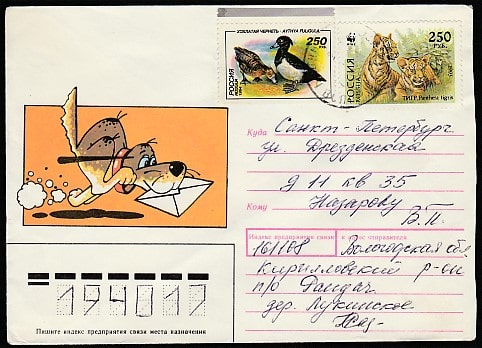 ХОХЛАТАЯ ЧЕРНЕТЬ · AYTHYA FULIGULA
250 РУБ.
РОССИЯ
WWF
250
РУБ.
РОССИЯ
ТИГР Panthera tigris
Куда Санкт-Петербург
ул. Дрезденская
д 11 кв 35
Кому Назарову
В.П.
Индекс предприятия связи и адрес отправителя
161108 Вологодская обл
Кирилловский р-он
п/о
дер. Лукинское
194017
Пишите индекс предприятия связи места назначения